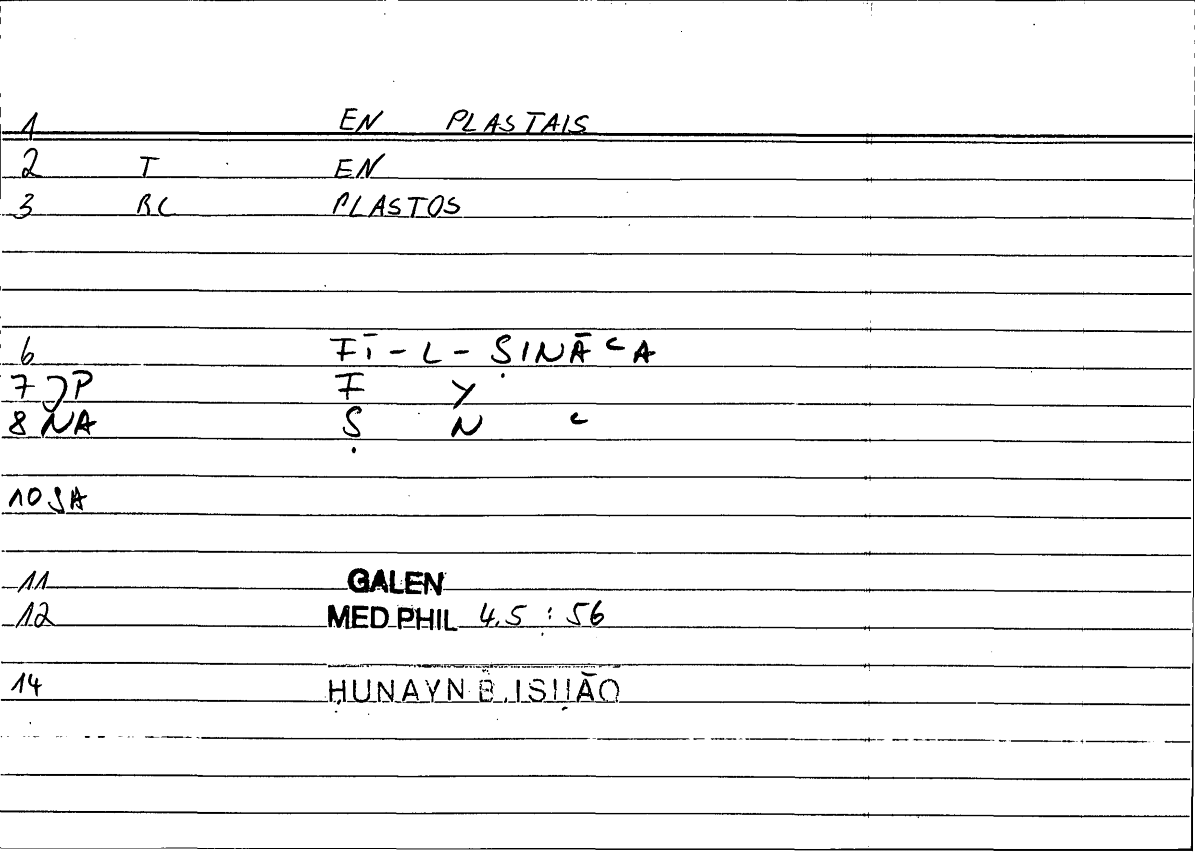 1 EN PLASTAIS
2 T EN
3 RC PLASTOS
6 FĪ-L-ṢINĀʿA
7 JP F Y
8 NA Ṣ N ʿ
10 SA
11 GALEN
12 MED PHIL 4.5 : 56
14 ḤUNAYN B. ISḤĀQ